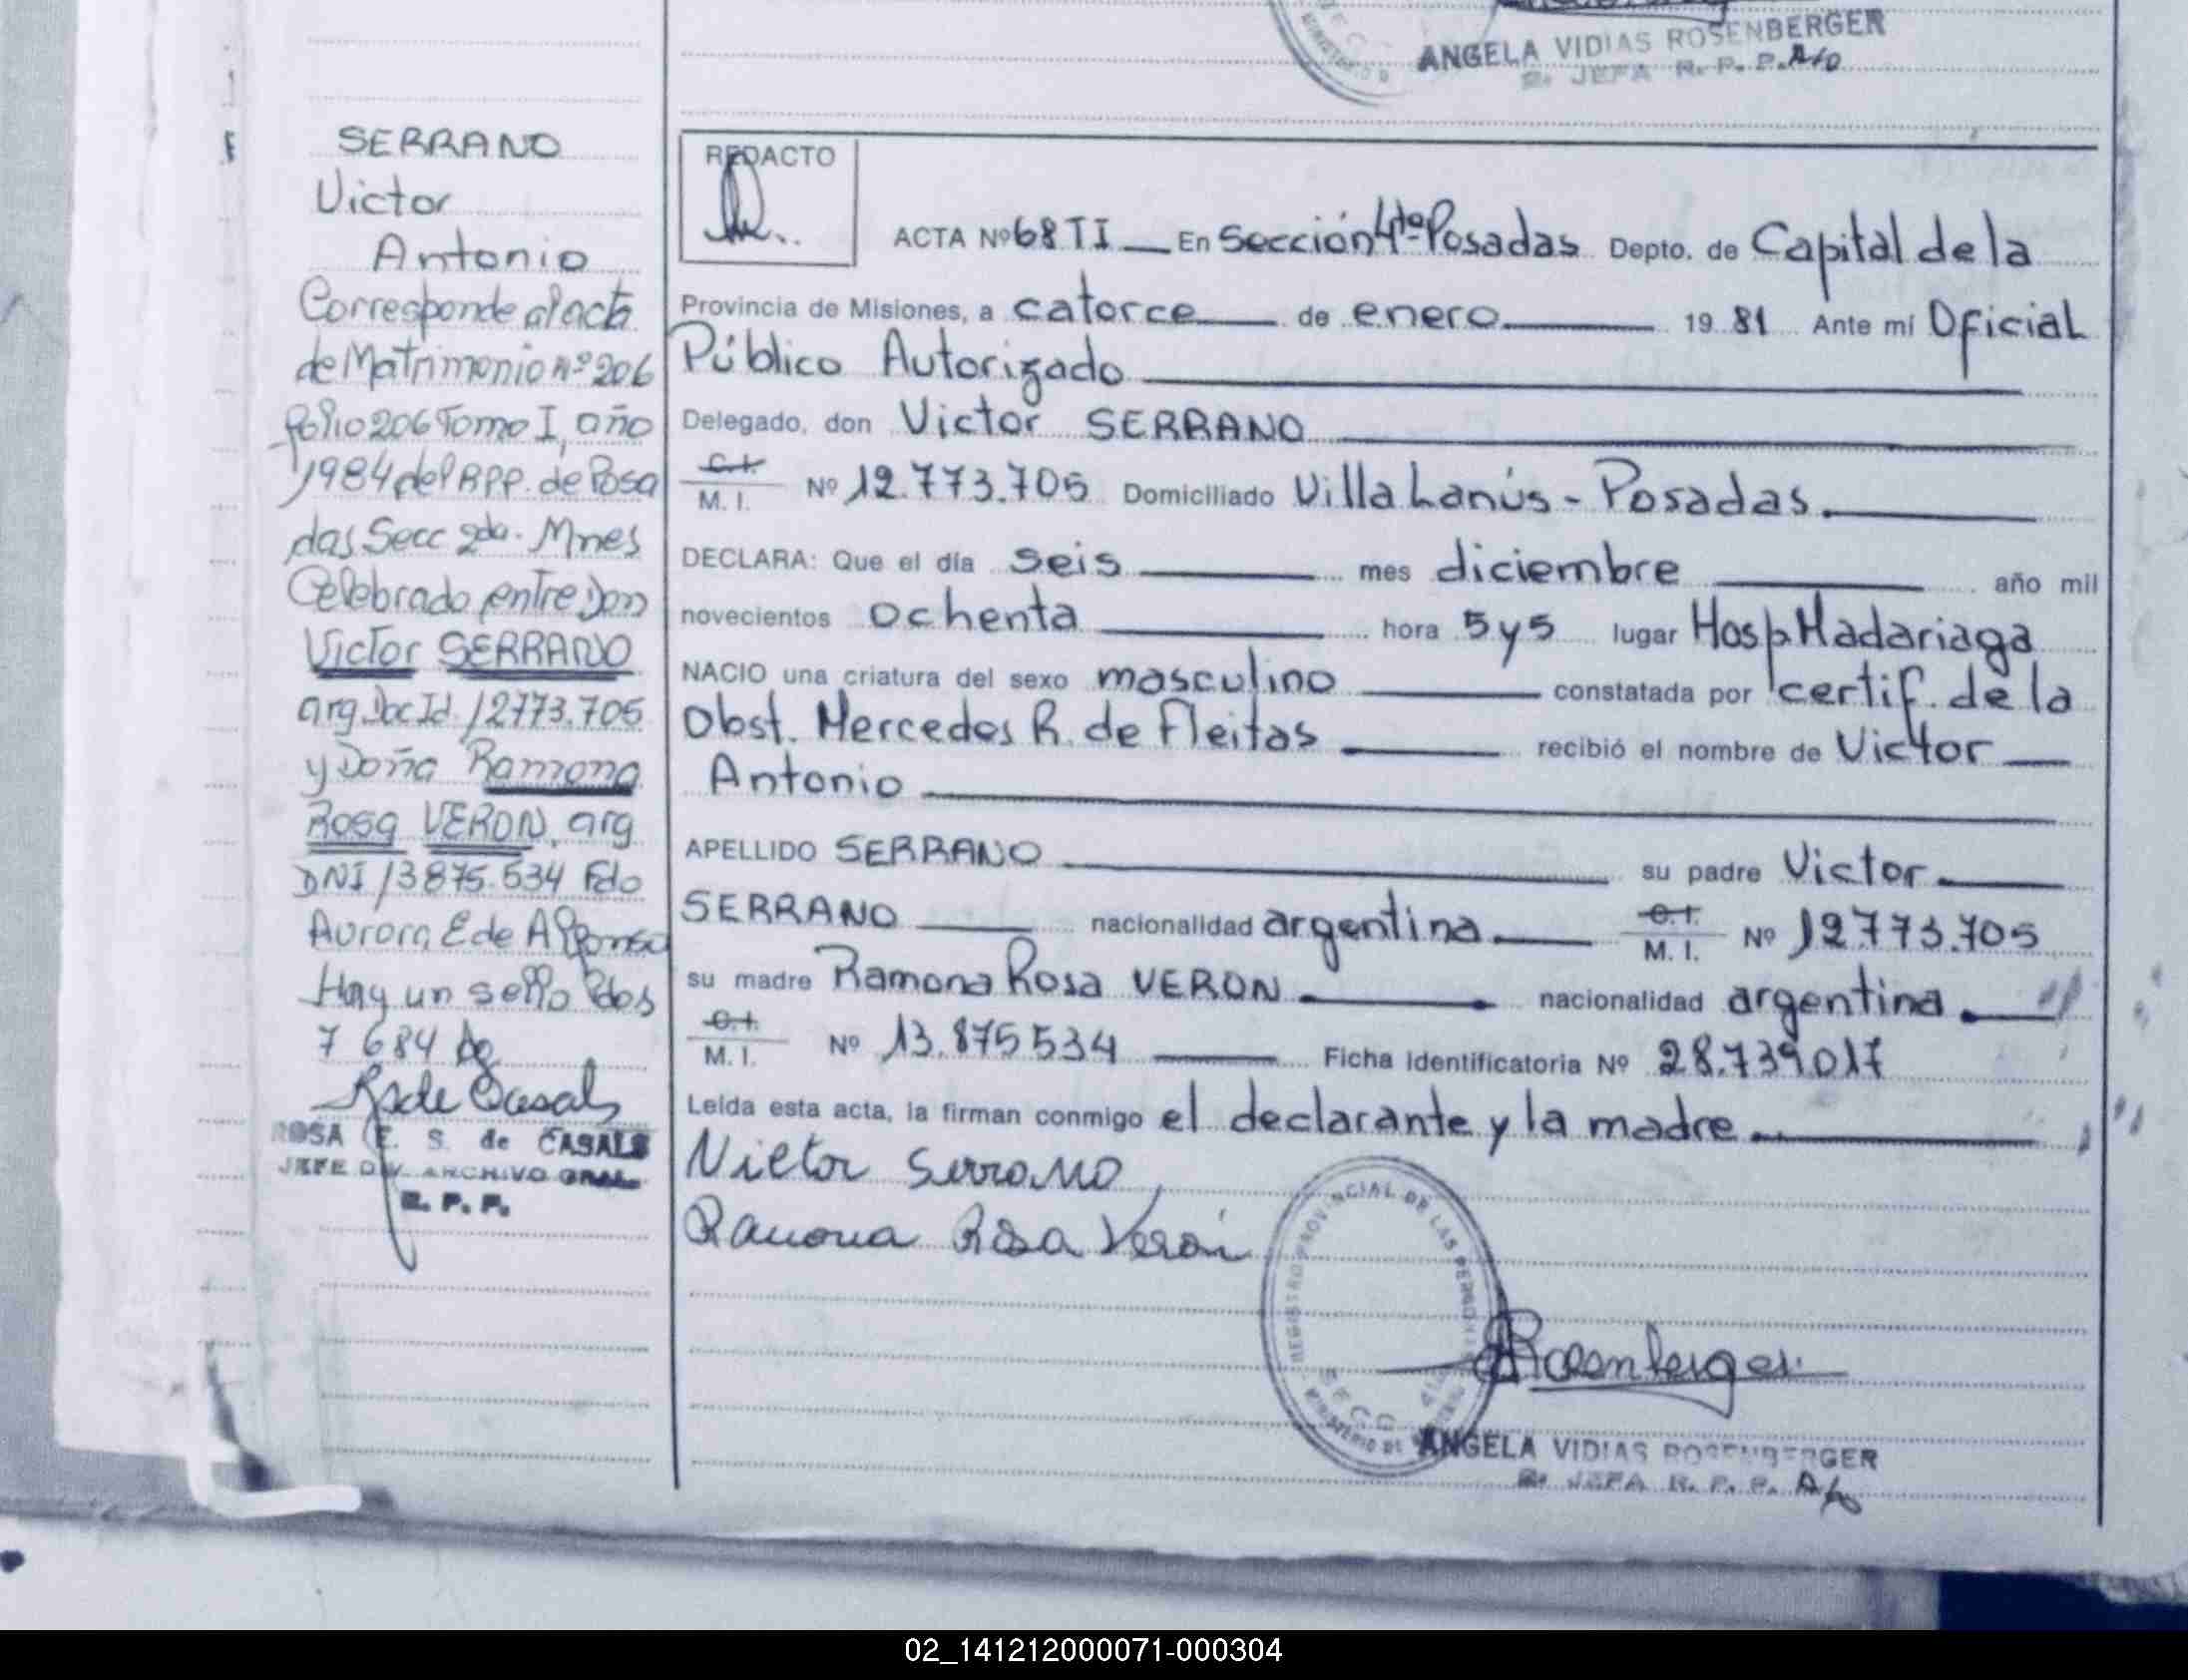 ANGELA VIDIAS ROSENBERGER
2. JEFA R. P. P. A/c
SERRANO
Victor
Antonio
Corresponde al acta
de Matrimonio nº 206
folio 206 Tomo I, año
1984 del RPP. de Posa
das Secc 2da. Mnes
Celebrado entre Don
Victor SERRANO
arg. Doc Id. 12773.705
y Doña Ramona
Rosa VERON, arg
DNI 13875.534 Fdo
Aurora E de Alfonso
Hay un sello Pdos
7 6 84
ROSA E. S. de CASALS
JEFE DIV. ARCHIVO GRAL.
R. P. P.
REDACTO
ACTA Nº 68 TI En Sección 4ta Posadas Depto. de Capital de la
Provincia de Misiones, a catorce de enero 19 81 Ante mí Oficial
Público Autorizado
Delegado, don Victor SERRANO
C.I. M. I. Nº 12.773.705 Domiciliado Villa Lanús - Posadas.
DECLARA: Que el día seis mes diciembre año mil
novecientos ochenta hora 5 y 5 lugar Hosp. Madariaga
NACIO una criatura del sexo masculino constatada por certif. de la
Obst. Mercedes R. de Fleitas recibió el nombre de Victor
Antonio
APELLIDO SERRANO su padre Victor
SERRANO nacionalidad argentina. C.I. M. I. Nº 12.773.705
su madre Ramona Rosa VERON nacionalidad argentina.
C.I. M. I. Nº 13.875534 Ficha Identificatoria Nº 28.739.017
Leída esta acta, la firman conmigo el declarante y la madre.
Victor Serrano
Ramona Rosa Verón
REGISTRO PROVINCIAL DE LAS PERSONAS
SECC
MINISTERIO DE
Rosenberger
ANGELA VIDIAS ROSENBERGER
2. JEFA R. P. P. A/c
02_141212000071-000304